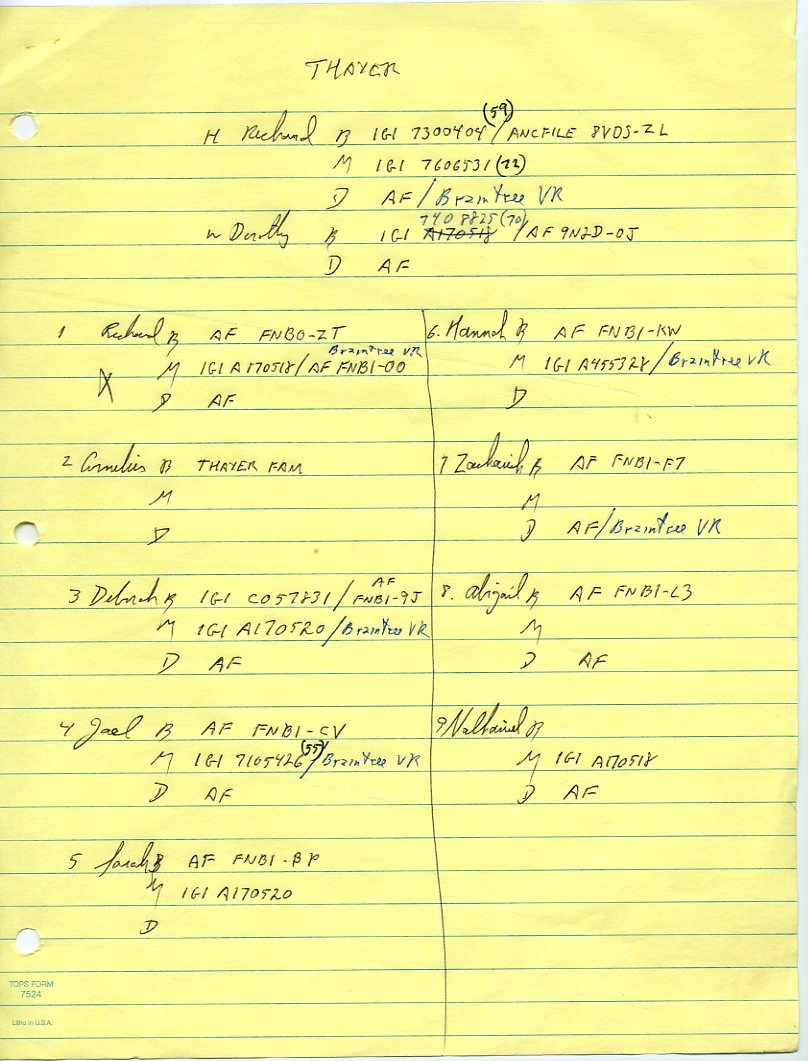 THAYER
(59)
H Richard B IGI 7300404 / ANCFILE 8VDS-ZL
M IGI 7606531 (72)
D AF / Braintree VR
7408825 (70)
W Dorothy B IGI A170518 / AF 9N2D-0J
D AF
1 Richard B AF FNB0-ZT
Braintree VR
X M IGI A170518 / AF FNB1-00
D AF
2 Cornelius B THAYER FAM
M
D
AF
3 Deborah B IGI C057831 / FNB1-9J
M IGI A170520 / Braintree VR
D AF
4 Jael B AF FNB1-CV
(55)
M IGI 7105426 / Braintree VR
D AF
5 Sarah B AF FNB1-BP
M IGI A170520
D
6. Hannah B AF FNB1-KW
M IGI A455328 / Braintree VR
D
7 Zachariah B AF FNB1-F7
M
D AF / Braintree VR
8. Abigail B AF FNB1-L3
M
D AF
9 Nathaniel B
M IGI A170518
D AF
TOPS FORM
7524
Litho in U.S.A.